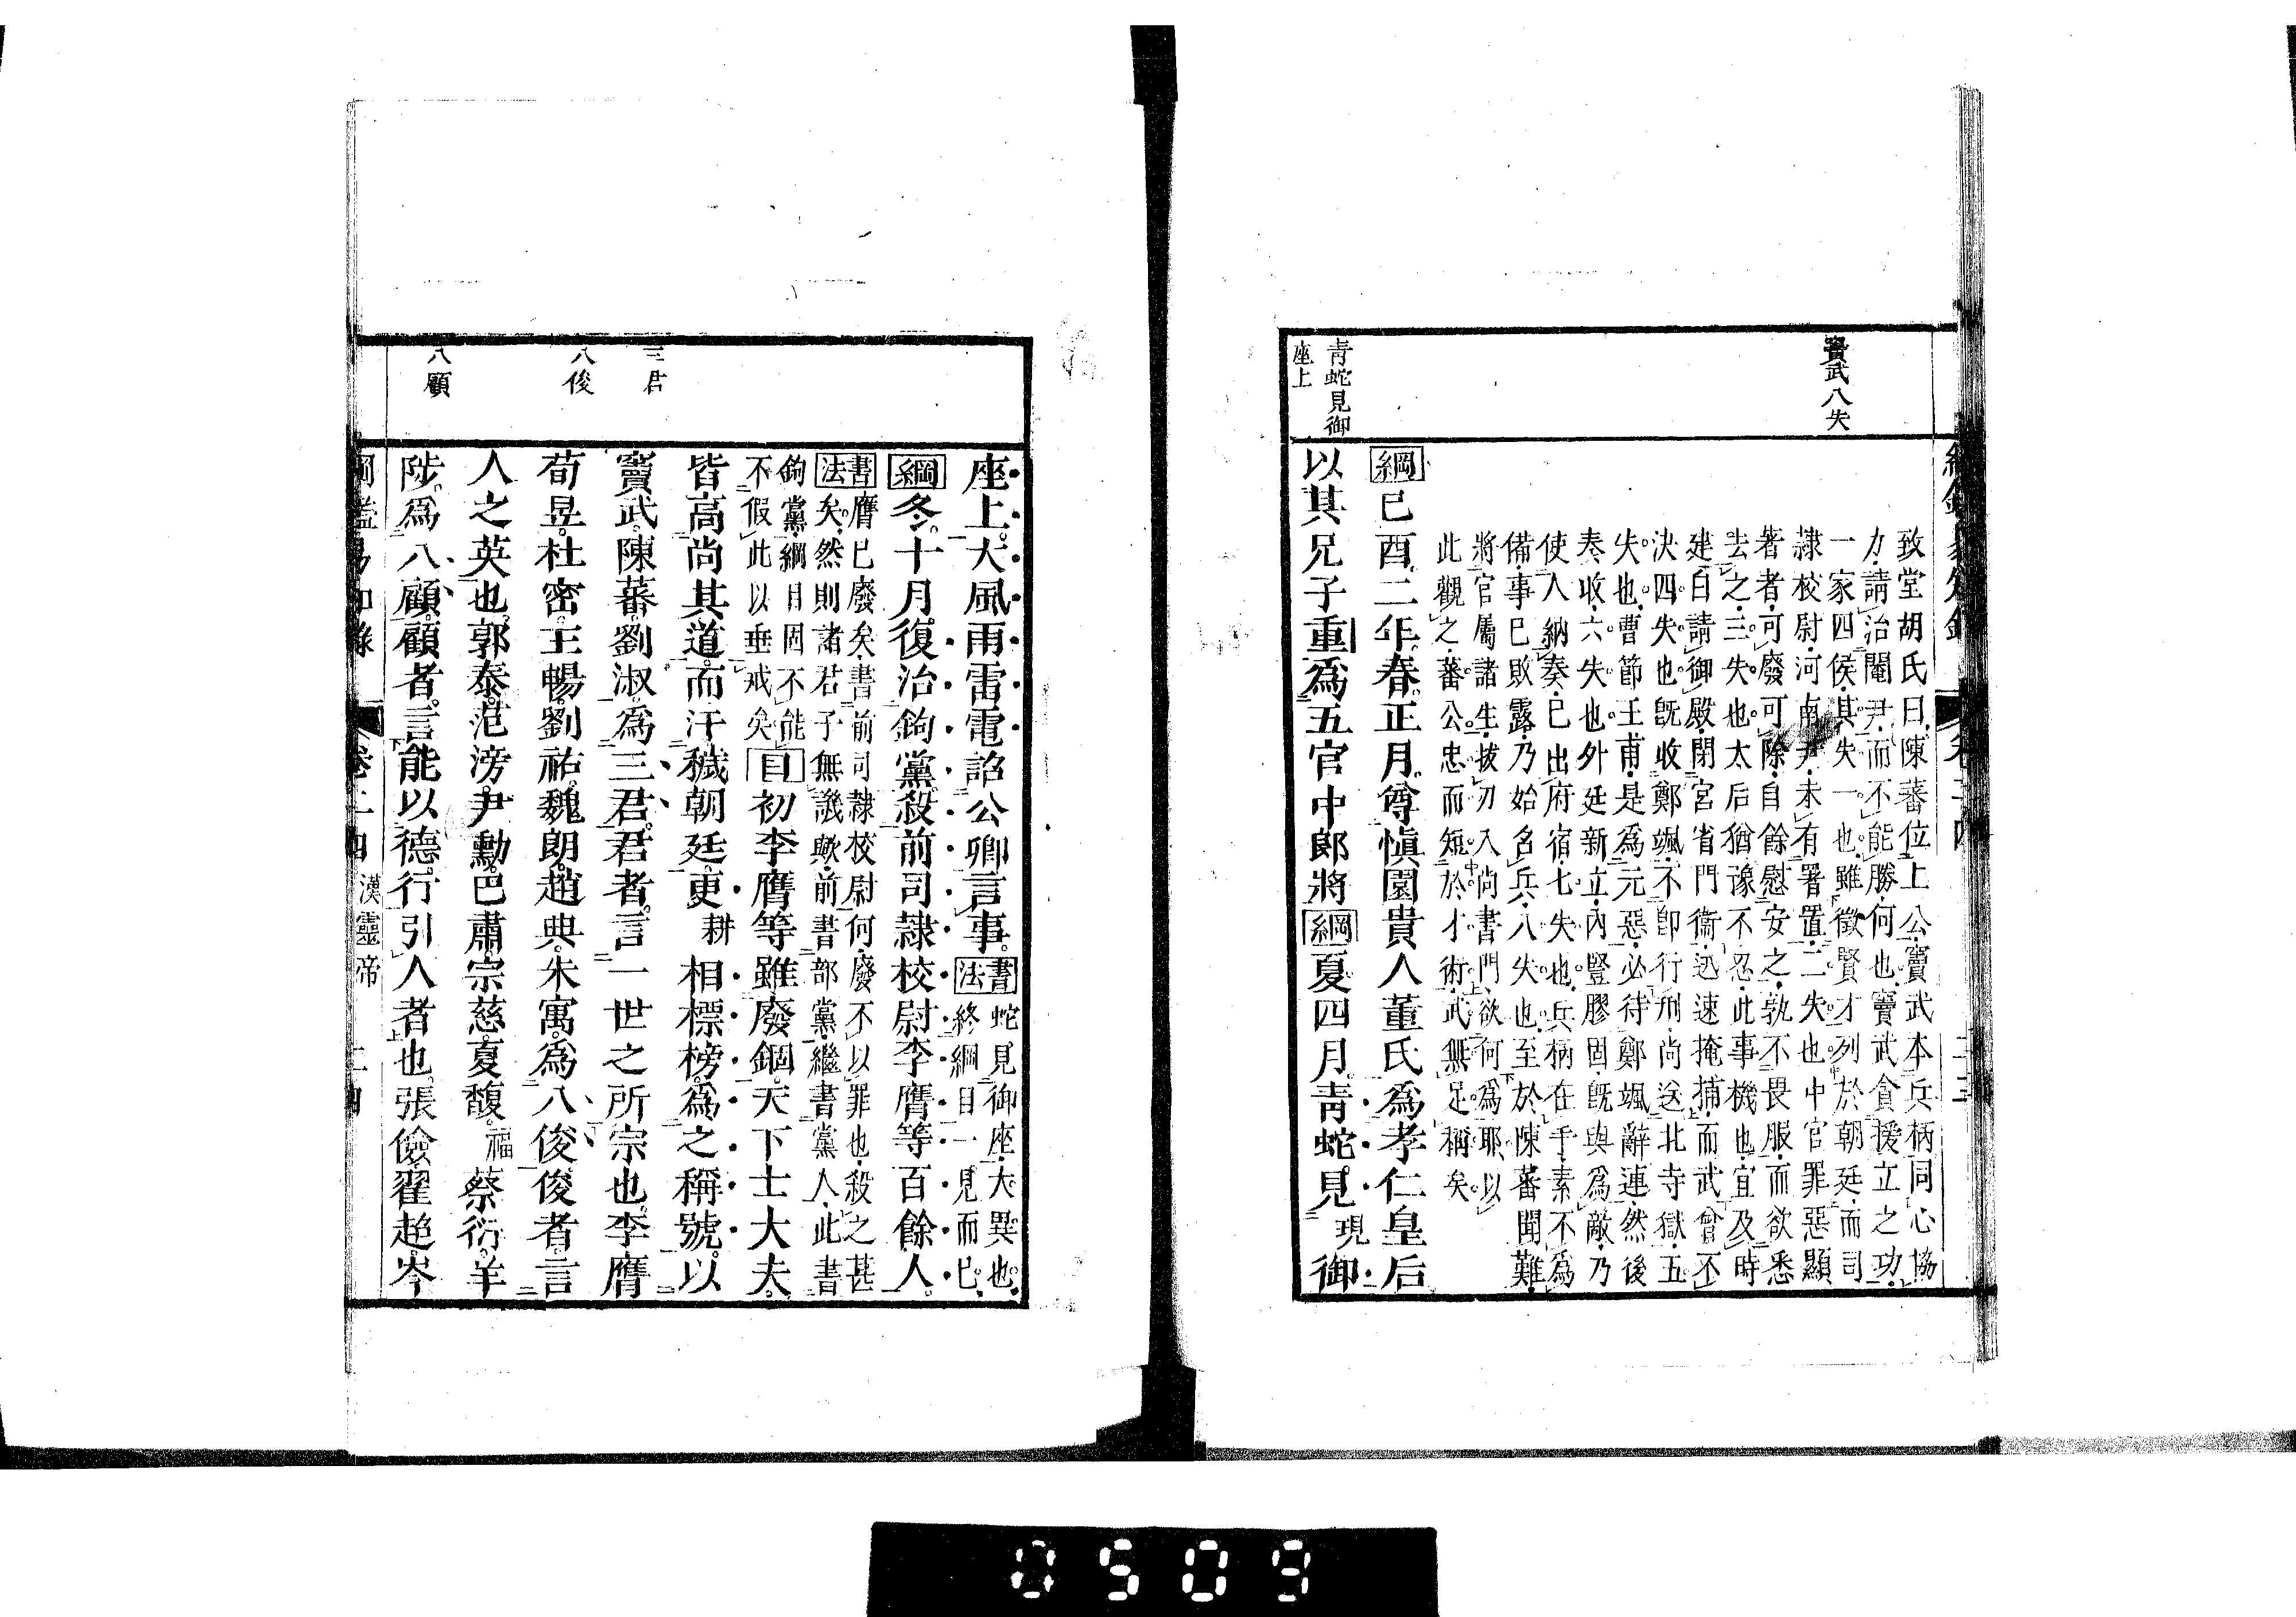 竇武八失
致堂胡氏曰陳蕃位上公竇武本兵柄同心協
力請治閹尹而不能勝何也竇武貪援立之功
一家四侯其失一也雖徵賢才列於朝廷而司
隷校尉河南尹未有署置二失也中官罪惡顯
著者可廢可除自餘慰安之孰不畏服而欲悉
去之三失也太后猶豫不忍此事機也宜及時
建白請御殿閉宮省門衞迅速掩捕而武曾不
決四失也旣收鄭颯不卽行刑尚送北寺獄五
失也曹節王甫是爲元惡必待鄭颯辭連然後
奏收六失也外廷新立內豎膠固旣與爲敵乃
使人納奏已出府宿七失也兵柄在手素不爲
備事已敗露乃始召兵八失也至於陳蕃聞難
將官屬諸生拔刃入尚書門欲何爲耶以
此觀之蕃公忠而短於才術武無足稱矣
綱巳酉二年春正月尊愼園貴人董氏爲孝仁皇后
青蛇見御
座上
以其兄子重爲五官中郎將綱夏四月靑蛇見現御
座上大風雨雷電詔公卿言事書法蛇見御座大異也
終綱目一見而已
綱冬十月復治鉤黨殺前司隷校尉李膺等百餘人
書法膺已廢矣書前司隷校尉何廢不以罪也殺之甚
矣然則諸君子無譏歟前書部黨繼書黨人此書
鉤黨綱目固不能
不假此以垂戒矣目初李膺等雖廢錮天下士大夫
皆高尚其道而汙穢朝廷更耕相標榜爲之稱號以
三君
竇武陳蕃劉淑爲三君君者言一世之所宗也李膺
八俊
荀昱杜密王暢劉祐魏朗趙典朱㝢爲八俊俊者言
人之英也郭泰范滂尹勳巴肅宗慈夏馥福蔡衍羊
八顧
陟爲八顧顧者言能以德行引人者也張儉翟超岑
卷二四 漢靈帝 二四
0509